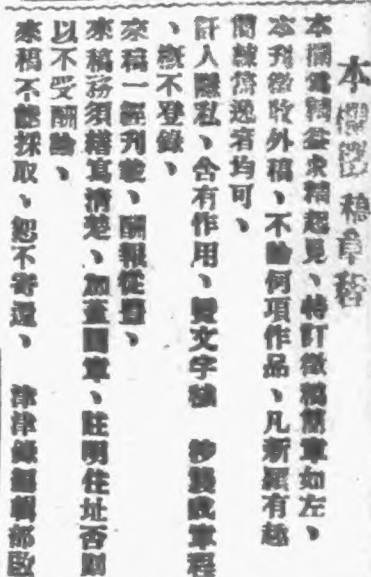 本欄徵稿章程
本欄為精益求精起見、特訂徵稿簡章如左、
本刊徵收外稿、不論何項作品、凡新穎有趣
簡練雋逸者均可、
訐人隱私、含有作用、暨文字穢　抄襲成章
、概不登錄、
來稿一經刊載、酬報從豐、
來稿務須繕寫清楚、加蓋圖章、註明住址否則
以不受酬論、
來稿不論採取、恕不寄還、　津津錄編輯部啟